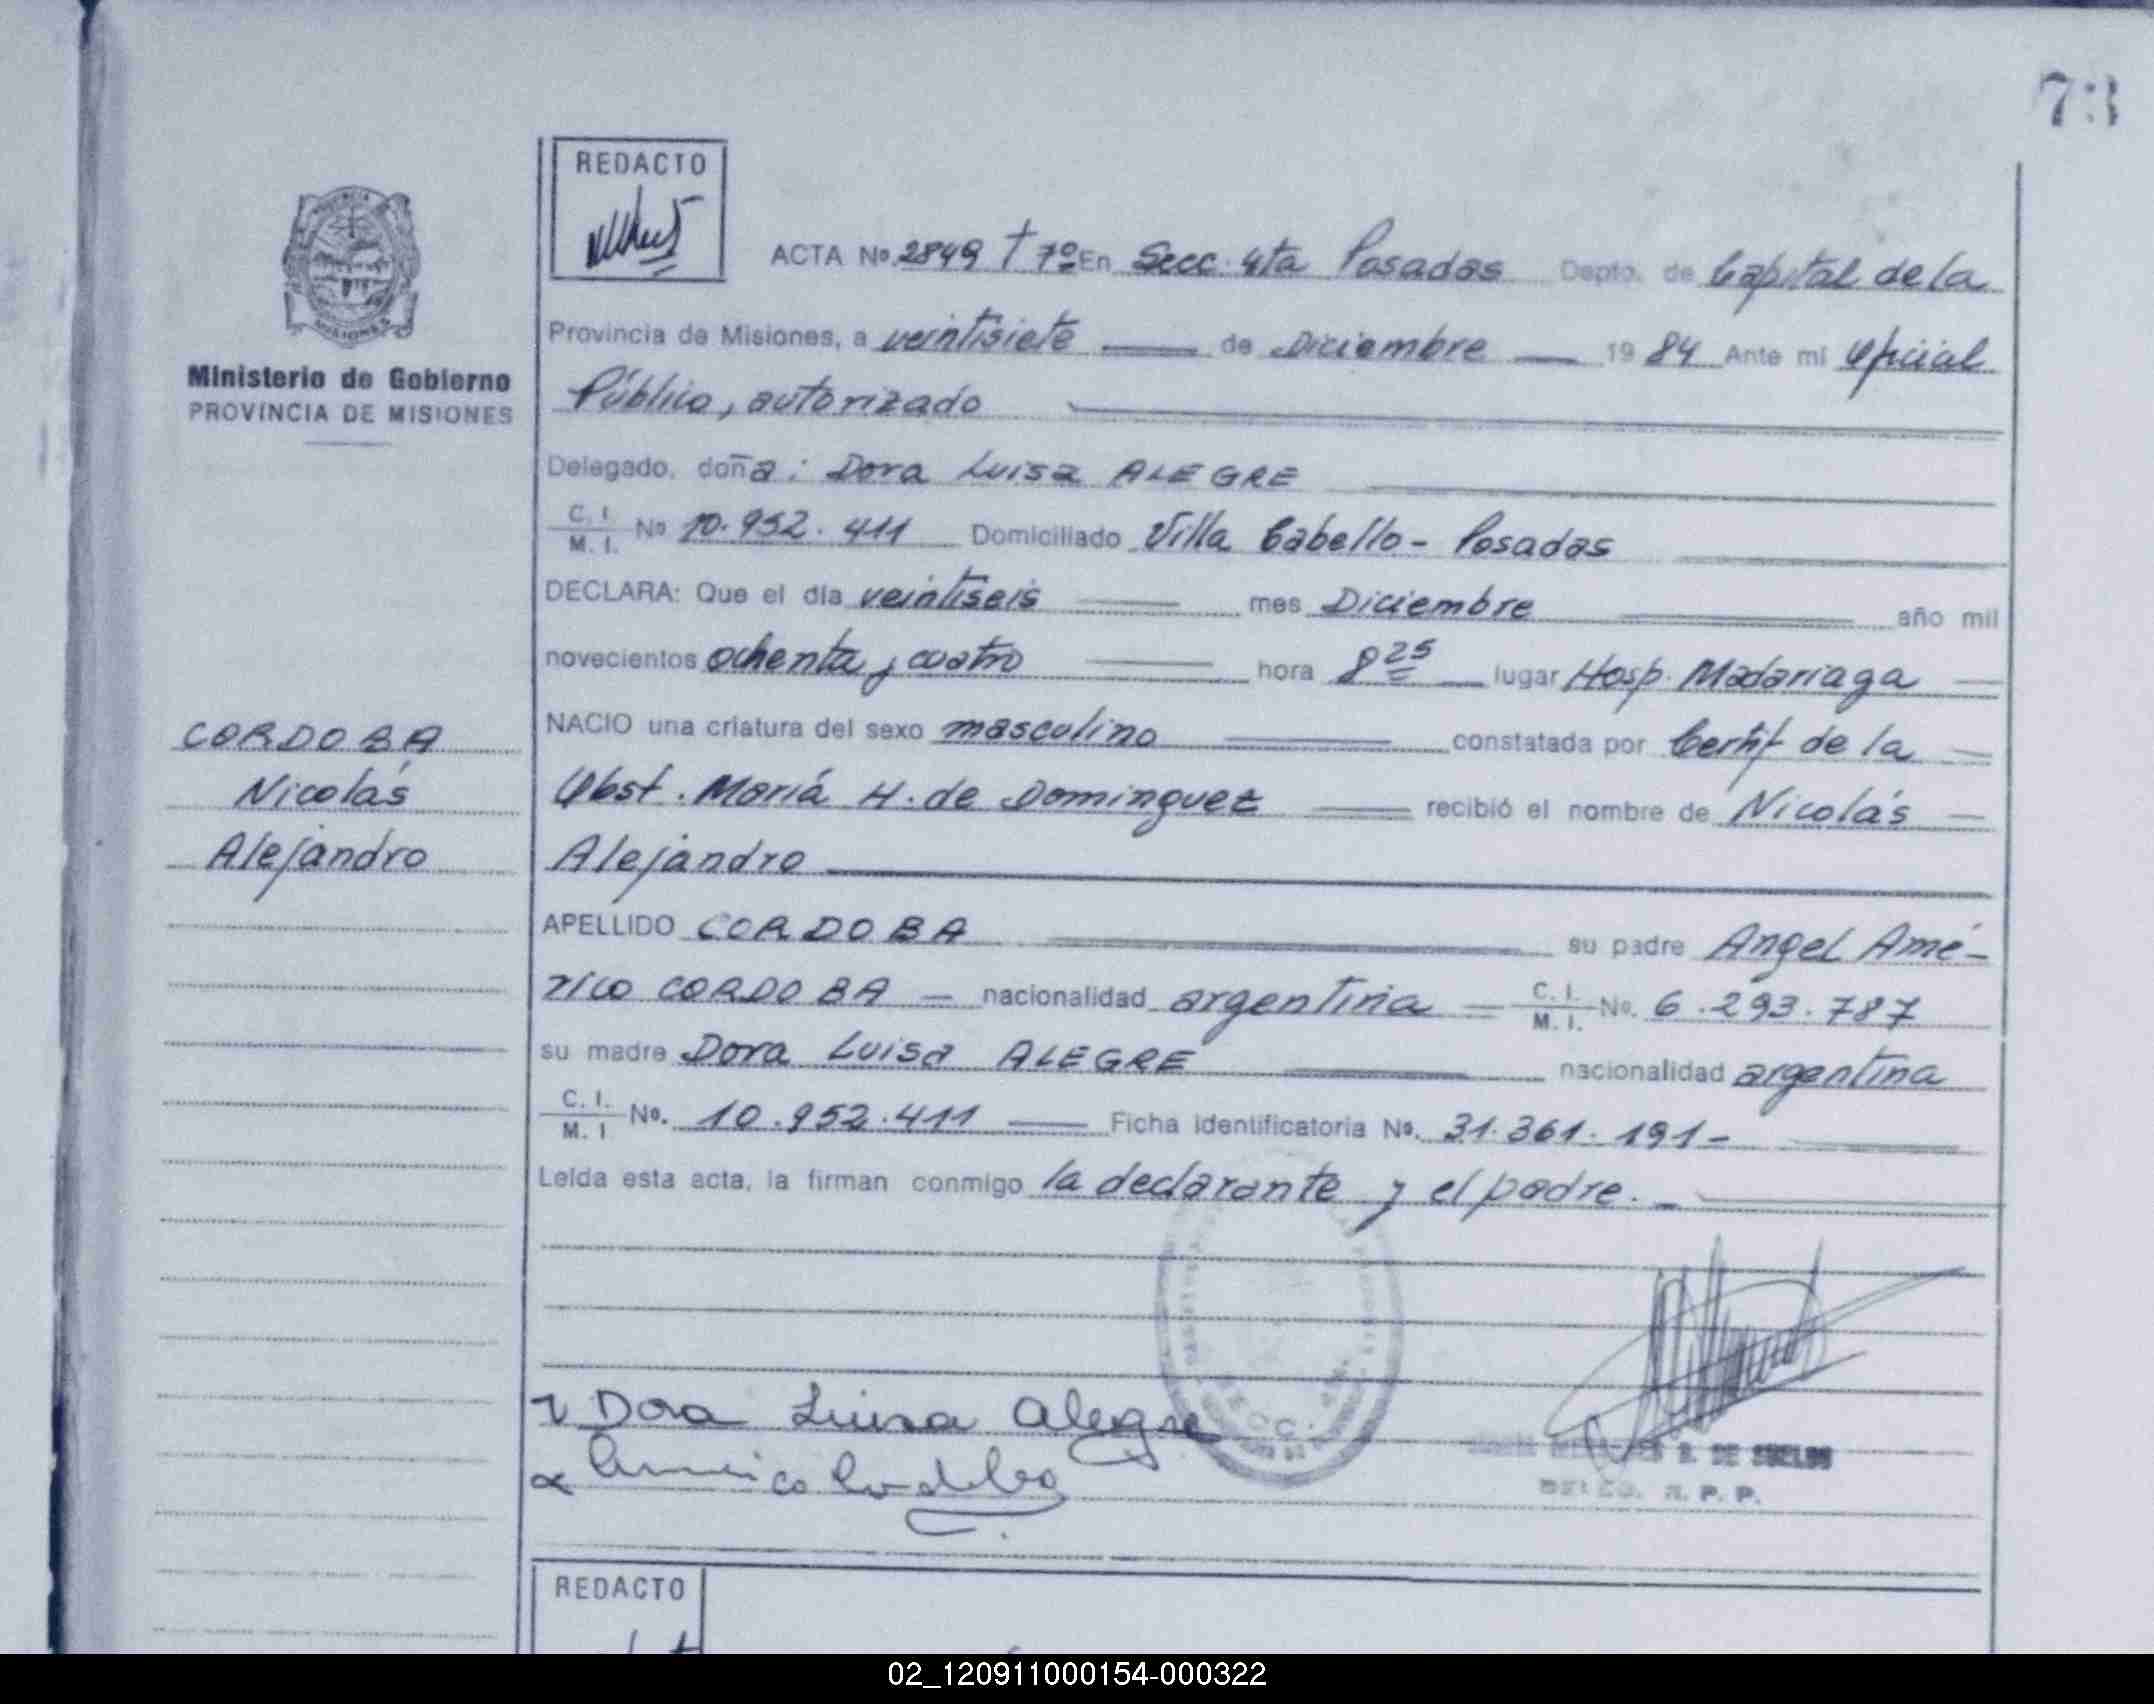 73
REDACTO
ACTA No. 2849 T 7º En Secc. 4ta Posadas Depto. de Capital de la
Provincia de Misiones, a veintisiete de Diciembre 19 84 Ante mi Oficial
Ministerio de Gobierno
PROVINCIA DE MISIONES
Público, autorizado
Delegado, doña: Dora Luisa ALEGRE
C. I.
M. I. No 10.952.411 Domiciliado Villa Cabello - Posadas
DECLARA: Que el día veintiseis mes Diciembre año mil
novecientos ochenta y cuatro hora 8 25 lugar Hosp. Madariaga
NACIO una criatura del sexo masculino constatada por Certif de la
Obst. María H. de Dominguez recibió el nombre de Nicolás
Alejandro
CORDOBA
Nicolás
Alejandro
APELLIDO CORDOBA su padre Angel Amé-
rico CORDOBA - nacionalidad argentina C. I.
M. I. No. 6.293.787
su madre Dora Luisa ALEGRE nacionalidad argentina
C. I.
M. I No. 10.952.411 Ficha Identificatoria No. 31.361.191-
Leída esta acta, la firman conmigo la declarante y el padre.-
Dora Luisa Alegre
Americo Cordoba
SECC. 4ta.
DE SUELDO
DELEG. R. P. P.
REDACTO
02_120911000154-000322